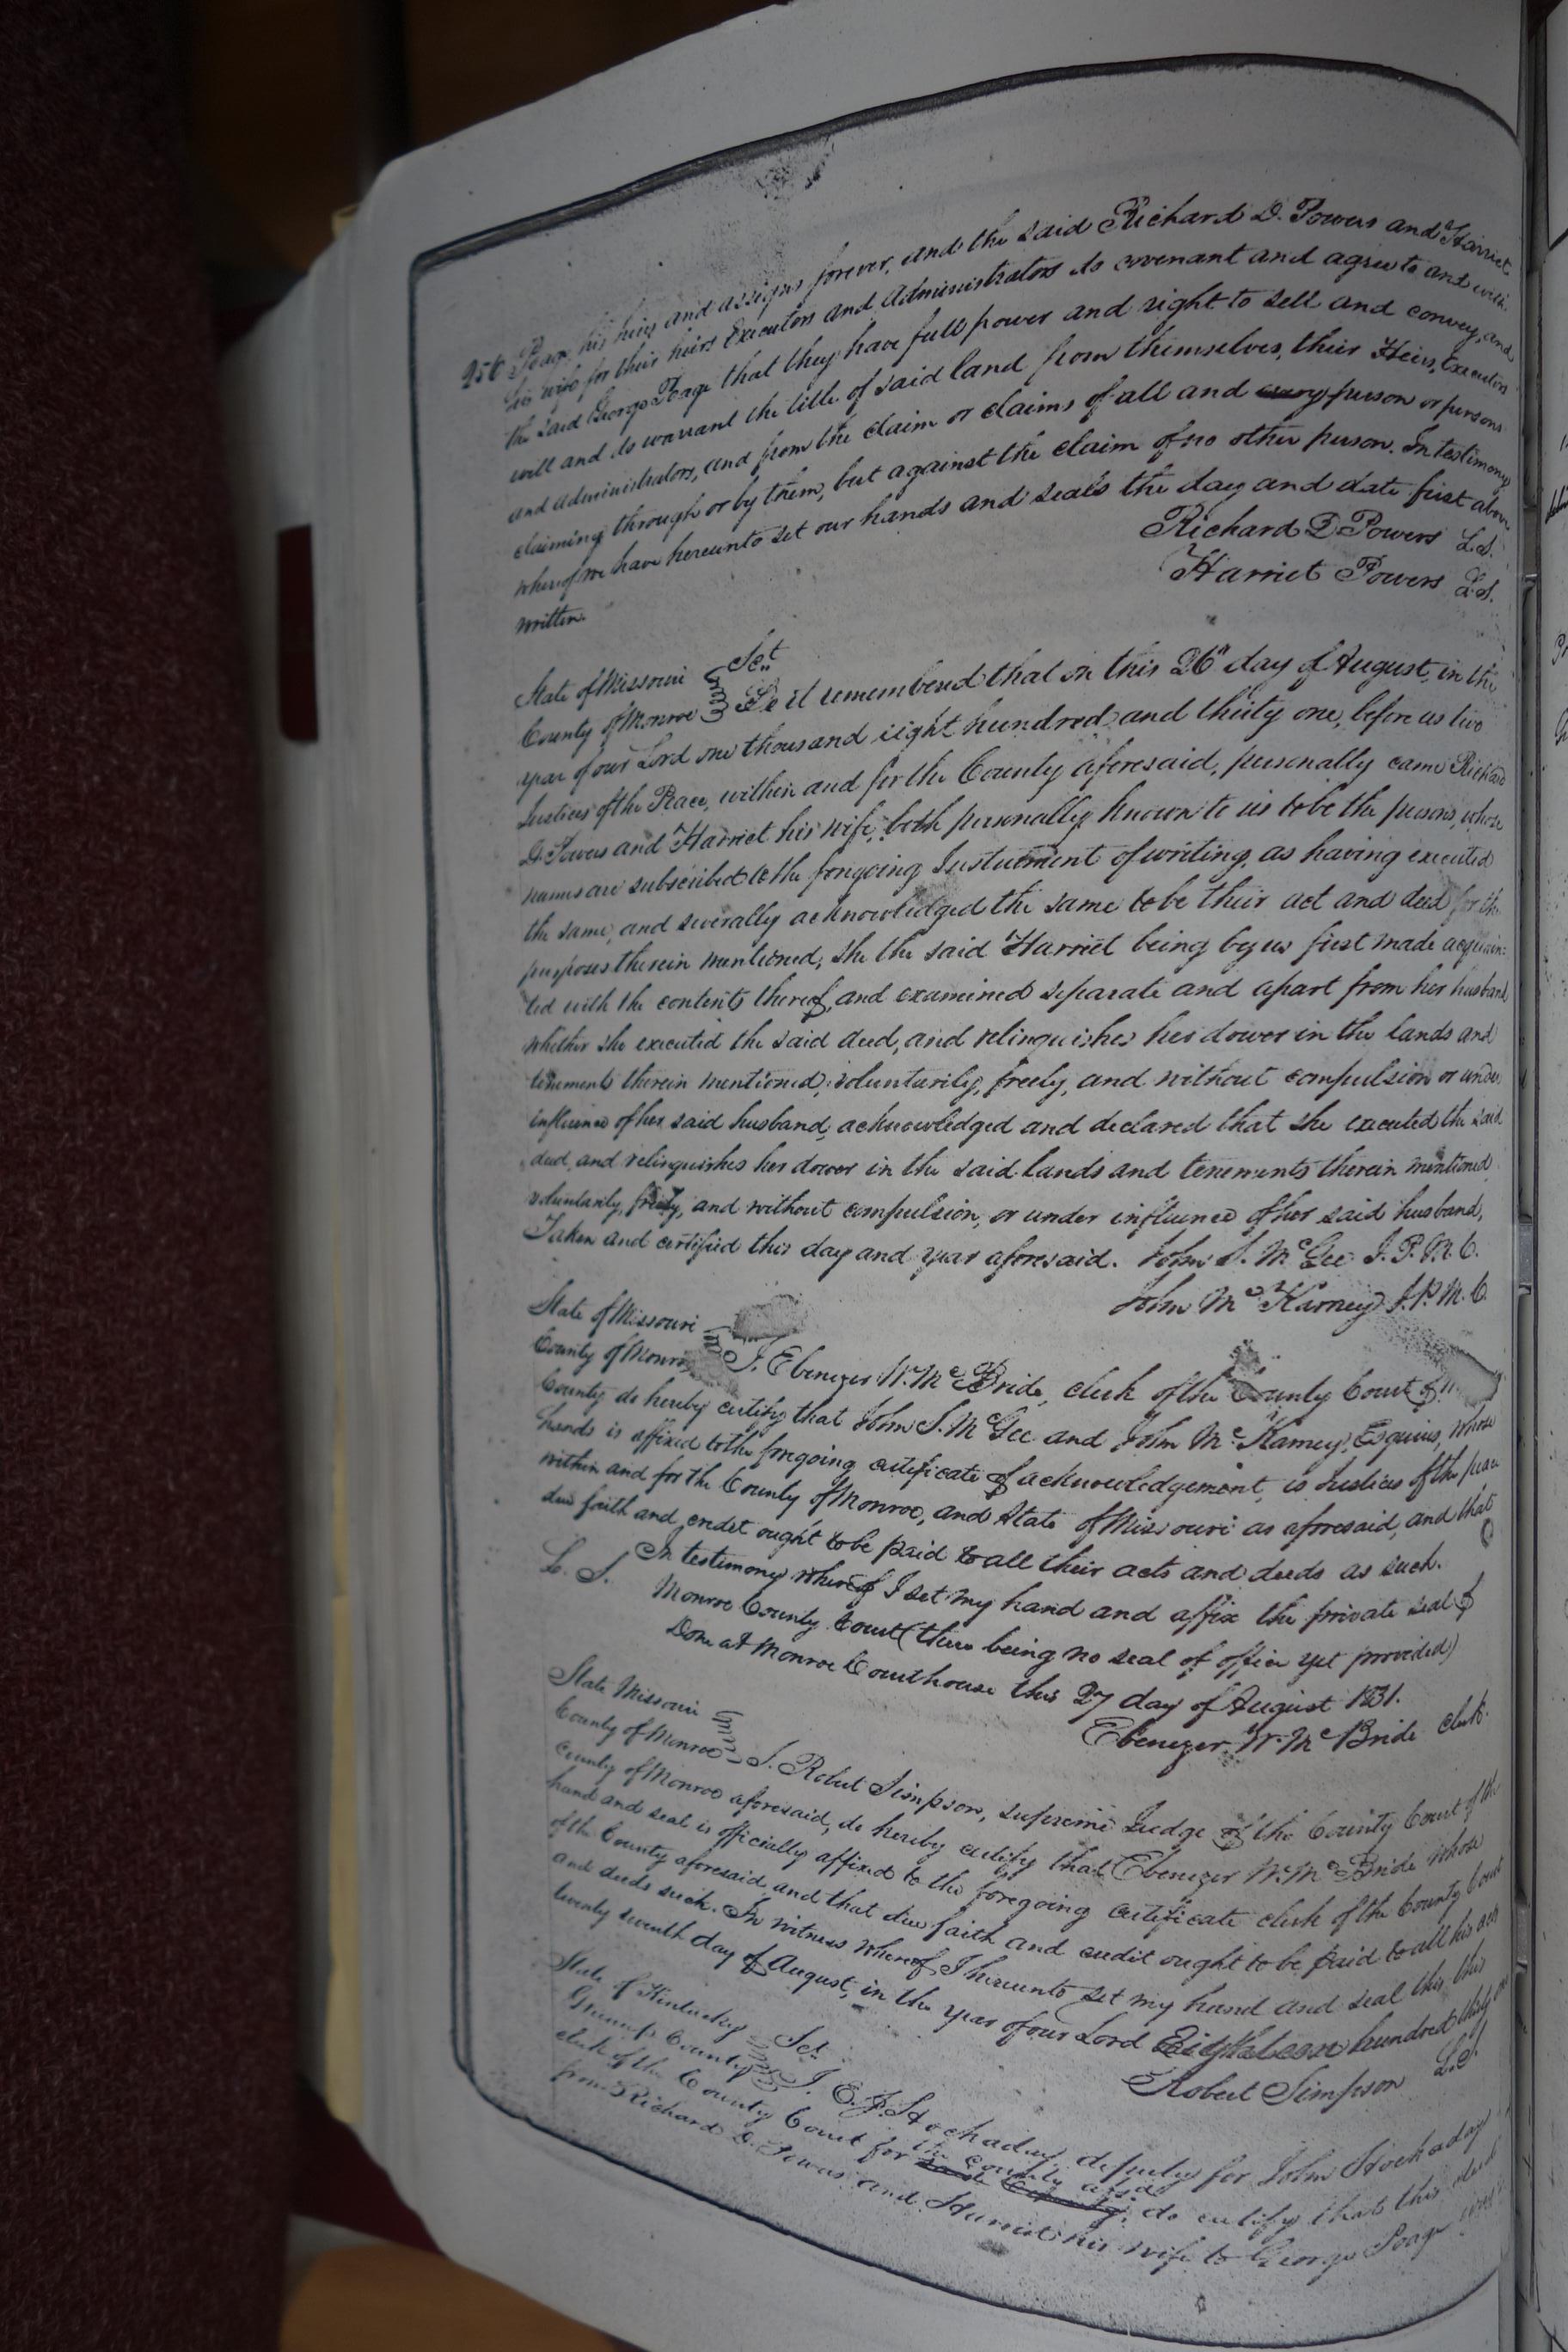 256 Poage, his heirs and assigns forever, and the said Richard D. Powers and Harriet
his wife for their heirs Executors and Administrators do covenant and agree to and with
the said George Poage that they have full power and right to sell and convey, and
will and do warrant the title of said land from themselves, their Heirs, Executors
and Administrators, and from the claim or claims of all and every person or persons
claiming through or by them, but against the claim of no other person. In testimony
whereof we have hereunto set our hands and seals the day and date first above
written.
Richard D Powers L.S.
Harriet Powers L.S.
State of Missouri Sct
County of Monroe Be it remembered that on this 26th day of August, in the
year of our Lord one thousand eight hundred and thirty one, before us two
Justices of the Peace, within and for the County aforesaid, personally came Richard
D. Powers and Harriet his wife, both personally known to us to be the persons, whose
names are subscribed to the foregoing Instrument of writing, as having executed
the same, and severally acknowledged the same to be their act and deed for the
purposes therein mentioned; she the said Harriet being by us first made acquain-
ted with the contents thereof, and examined separate and apart from her husband
whether she executed the said deed, and relinquishes her dower in the lands and
tenements therein mentioned, voluntarily, freely, and without compulsion or undue
influence of her said husband, acknowledged and declared that she executed the said
deed, and relinquishes her dower in the said lands and tenements therein mentioned
voluntarily, freely, and without compulsion, or under influence of her said husband,
Taken and certified this day and year aforesaid. John S. McGee J. P. M. C.
John McKamey J. P. M. C.
State of Missouri
County of Monroe I, Ebenezer W. McBride, clerk of the County Court of
County do hereby certify that John S. McGee and John McKamey, Esquires, whose
hands is affixed to the foregoing certificate of acknowledgement, is Justices of the peace
within and for the County of Monroe, and State of Missouri as aforesaid, and that
due faith and credit ought to be paid to all their acts and deeds as such.
L. S. In testimony whereof I set my hand and affix the private seal of
Monroe County Court (there being no seal of office yet provided)
Done at Monroe Courthouse this 27 day of August 1831.
Ebenezer W. McBride clerk.
State Missouri
County of Monroe I. Robert Simpson, supreme Judge of the County Court of the
County of Monroe aforesaid, do hereby certify that Ebenezer W. McBride whose
hand and seal is officially affixed to the foregoing certificate clerk of the County Court
of the County aforesaid, and that due faith and credit ought to be paid to all his acts
and deeds such. In witness whereof I hereunto set my hand and seal this the
twenty seventh day of August, in the year of our Lord Eighteen hundred thirty one
Robert Simpson L.S.
State of Kentucky
Greenup County Sct. I. E. F. Hockaday, deputy for John Hockaday
clerk of the County Court for the County afsd do certify that this deed
from Richard D. Powers and Harriet his wife to George Poage